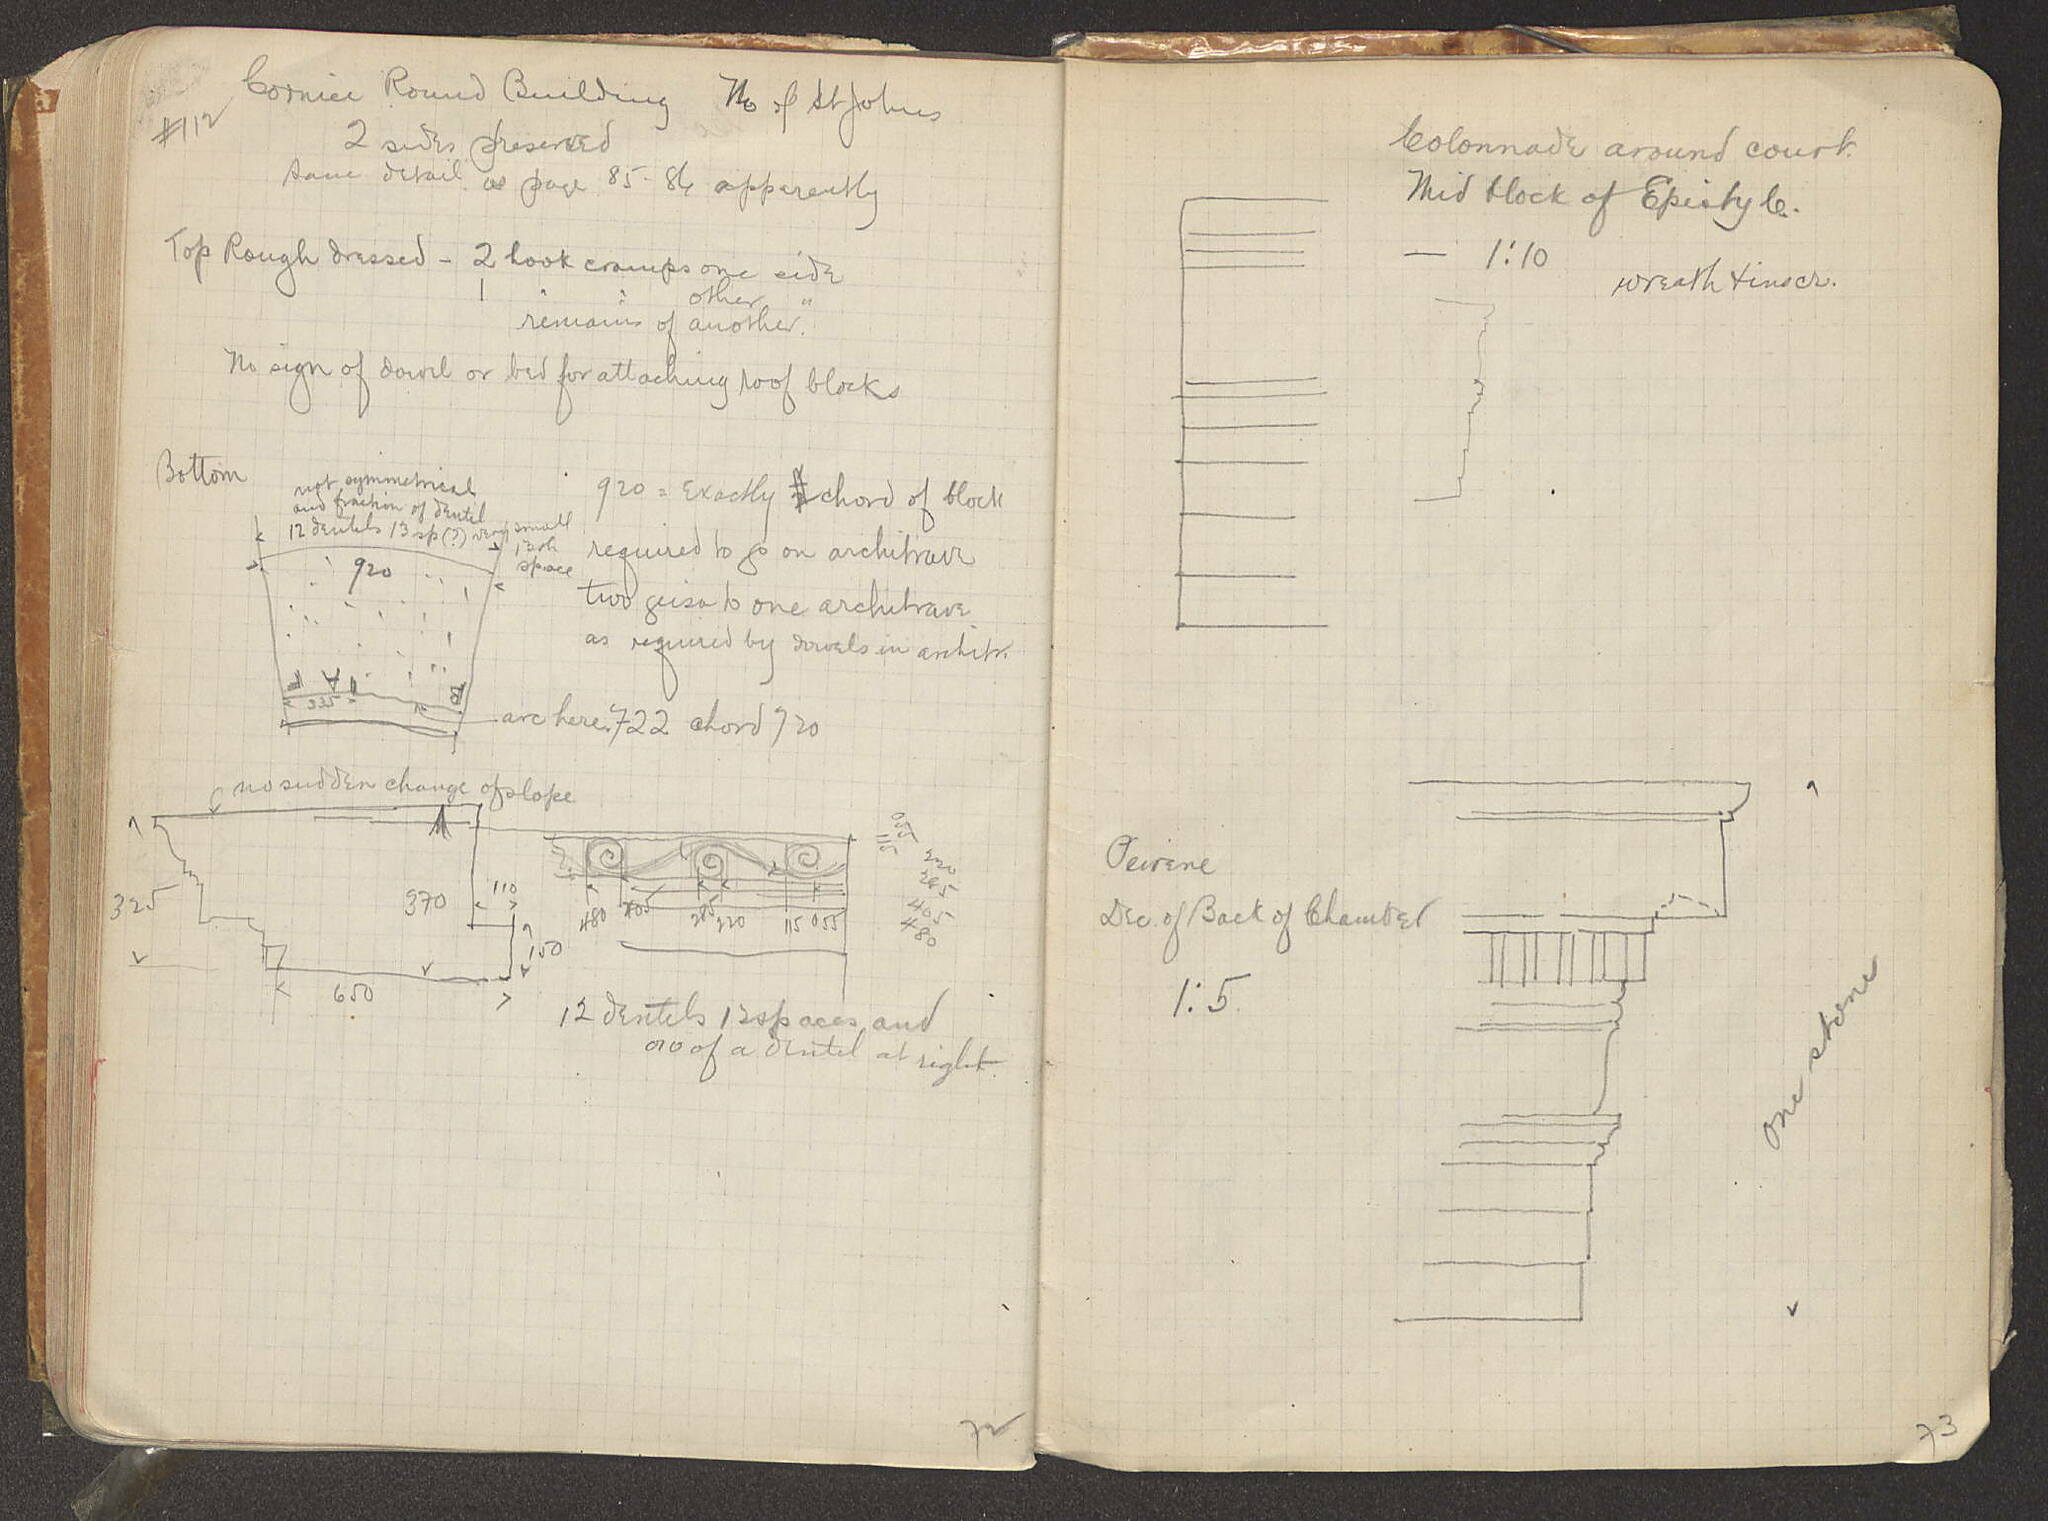 #112
Cornice Round Building No of St Johns
2 sides preserved
same detail as page 85-86 apparently
Top Rough dressed - 2 hook cramps one side
1 " " other "
remains of another.
No sign of dowel or bed for attaching roof blocks
Bottom
not symmetrical
and fraction of dentel
12 dentels 13 sp(?) very small
13th
space
920
A
B
335
920 = Exactly chord of block
required to go on architrave
two geisa to one architrave
as required by dowels in architr.
arc here 722 chord 720
no sudden change of slope
325
370
110
150
650
480 405 285 220 115 055
055
115
220
285
405
480
12 dentels 12 spaces and
010 of a dentel at right.
72
Colonnade around court.
Mid block of Epistyle.
— 1:10
wreath + inscr.
Peirene
Dec. of Back of Chamber
1:5
One stone
73